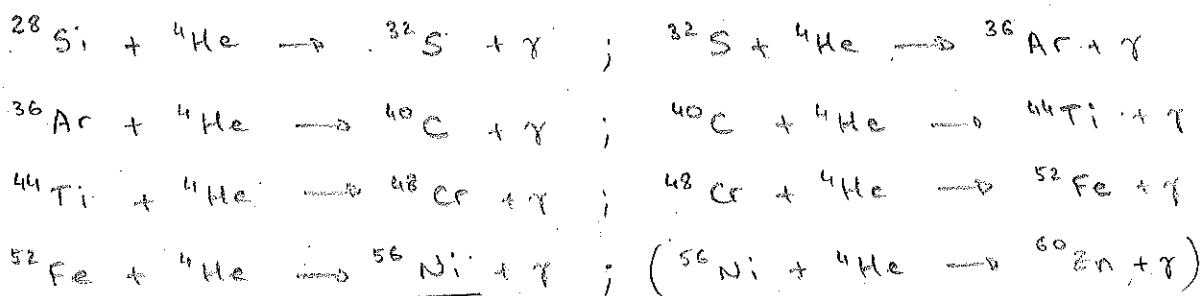 ²⁸Si + ⁴He → ³²S + γ ; ³²S + ⁴He → ³⁶Ar + γ
³⁶Ar + ⁴He → ⁴⁰C + γ ; ⁴⁰C + ⁴He → ⁴⁴Ti + γ
⁴⁴Ti + ⁴He → ⁴⁸Cr + γ ; ⁴⁸Cr + ⁴He → ⁵²Fe + γ
⁵²Fe + ⁴He → ⁵⁶Ni + γ ; (⁵⁶Ni + ⁴He → ⁶⁰Zn + γ)